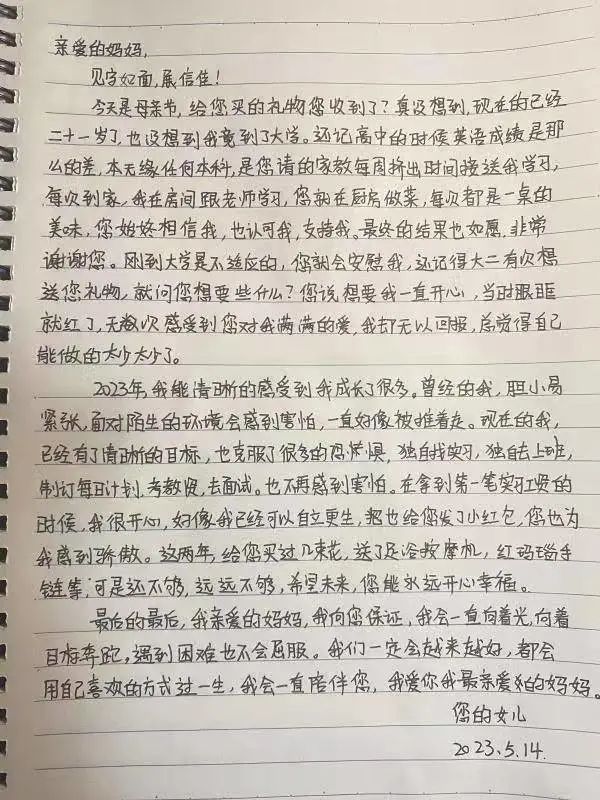 亲爱的妈妈,
见字如面,展信佳!
今天是母亲节,给您买的礼物您收到了?真没想到,现在的已经
二十一岁了,也没想到我竟到了大学。还记高中的时候英语成绩是那
么的差,本无缘任何本科,是您请的家教每周挤出时间接送我学习,
每次到家,我在房间跟老师学习,您就在厨房做菜,每次都是一桌的
美味,您始终相信我,也认可我,支持我。最终的结果也如愿,非常
谢谢您。刚到大学是不适应的,您就会安慰我,还记得大二有次想
送您礼物,就问您想要些什么?您说想要我一直开心,当时眼眶
就红了,无数次感受到您对我满满的爱,我却无以回报,总觉得自己
能做的太少太少了。
2023年,我能清晰的感受到我成长了很多。曾经的我,胆小易
紧张,面对陌生的环境会感到害怕,一直好像被推着走。现在的我,
已经有了清晰的目标,也克服了很多的恐惧,独自找实习,独自去上班,
制订每日计划,考教资,去面试。也不再感到害怕。在拿到第一笔实习工资的
时候,我很开心,好像我已经可以自立更生,我也给您发了小红包,您也为
我感到骄傲。这两年,给您买过几束花,送了足浴按摩机,红玛瑙手
链等,可是还不够,远远不够,希望未来,您能永远开心幸福。
最后的最后,我亲爱的妈妈,我向您保证,我会一直向着光,向着
目标奔跑,遇到困难也不会屈服。我们一定会越来越好,都会
用自己喜欢的方式过一生,我会一直陪伴您,我爱你我最亲爱的妈妈。
您的女儿
2023.5.14